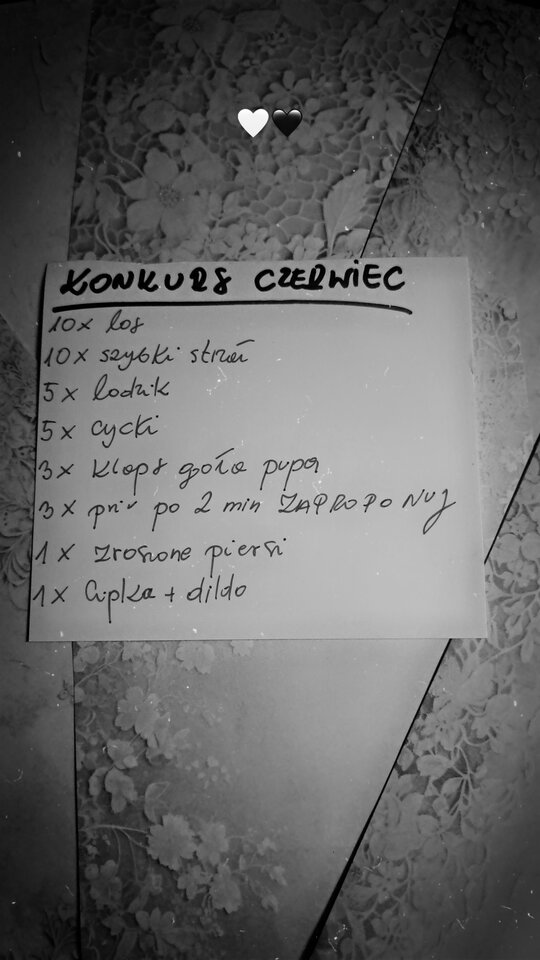 KONKURS CZERWIEC
10x los
10x szybki strzał
5x lodzik
5x cycki
3x klaps goła pupa
3x priv po 2 min ZAPROPONUJ
1x zroszone piersi
1x Cipka + dildo